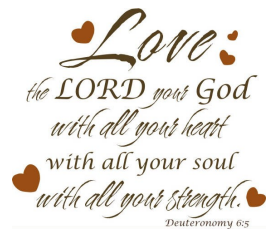 Love
the LORD your God
with all your heart
with all your soul
with all your strength.
Deuteronomy 6:5